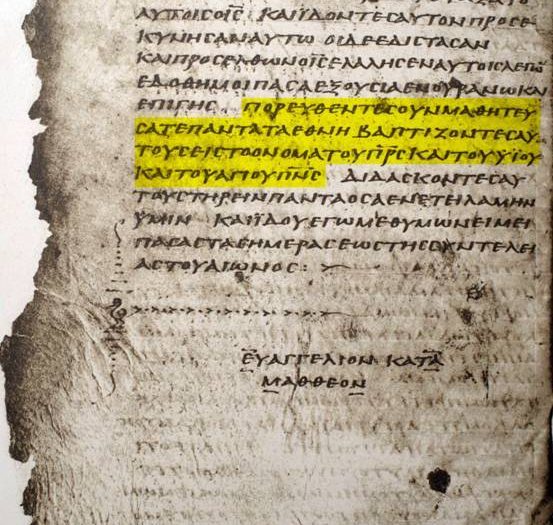 ΑΥΤΟΙϹΟΙ̅Ϲ̅ ΚΑΙΪΔΟΝΤΕϹΑΥΤΟΝΠΡΟϹΕ
ΚΥΝΗϹΑΝΑΥΤΩ ΟΙΔΕΕΔΙϹΤΑϹΑΝ
ΚΑΙΠΡΟϹΕΛΘΩΝΟΙ̅Ϲ̅ΕΛΑΛΗϹΕΝΑΥΤΟΙϹΛΕΓΩ
ΕΔΟΘΗΜΟΙΠΑϹΑΕΞΟΥϹΙΑΕΝΟΥΡΑΝΩΚΑΙ
ΕΠΙΓΗϹ ΠΟΡΕΥΘΕΝΤΕϹΟΥΝΜΑΘΗΤΕΥ
ϹΑΤΕΠΑΝΤΑΤΑΕΘΝΗ ΒΑΠΤΙΖΟΝΤΕϹΑΥ
ΤΟΥϹΕΙϹΤΟΟΝΟΜΑΤΟΥΠ̅Ρ̅Ϲ̅ΚΑΙΤΟΥΥΪΟΥ
ΚΑΙΤΟΥΑΓΙΟΥΠ̅Ν̅Ϲ̅ ΔΙΔΑϹΚΟΝΤΕϹΑΥ
ΤΟΥϹΤΗΡΕΙΝΠΑΝΤΑΟϹΑΕΝΕΤΕΙΛΑΜΗΝ
ΫΜΙΝ ΚΑΙΪΔΟΥΕΓΩΜΕΘΥΜΩΝΕΙΜΕΙ
ΠΑϹΑϹΤΑϹΗΜΕΡΑϹΕΩϹΤΗϹϹΥΝΤΕΛΕΙ
ΑϹΤΟΥΑΙΩΝΟϹ:
ΕΥΑΓΓΕΛΙΟΝ ΚΑΤΑ
ΜΑΘΘΕΟΝ